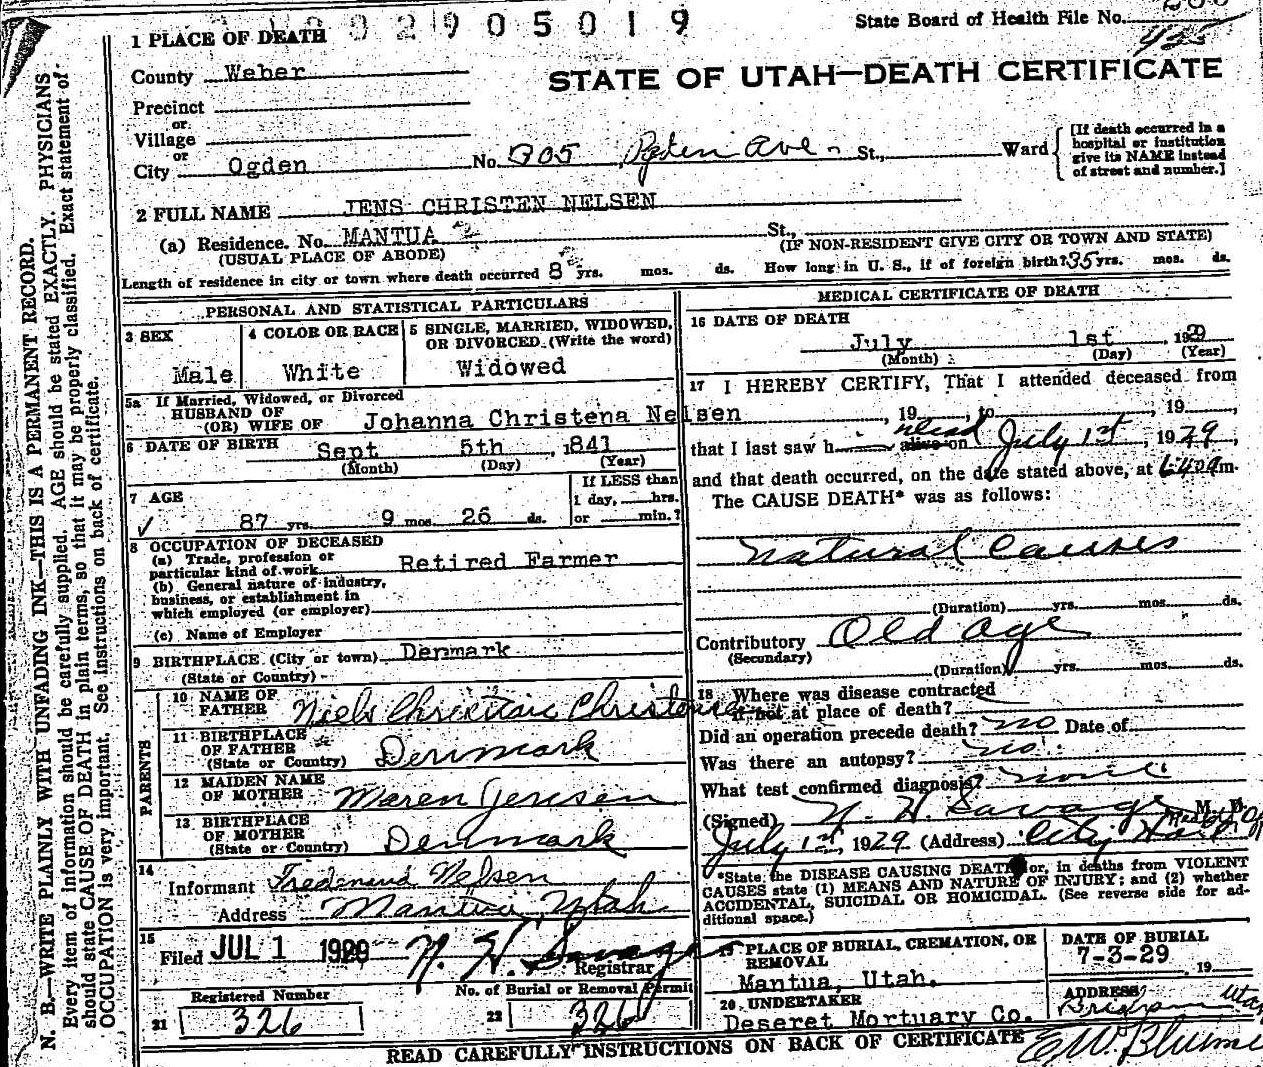 92905019
State Board of Health File No.
1 PLACE OF DEATH
County Weber
STATE OF UTAH—DEATH CERTIFICATE
Precinct
or
Village
or
City Ogden No. 905 Ogden Ave St., Ward
[If death occurred in a hospital or institution give its NAME instead of street and number.]
2 FULL NAME JENS CHRISTEN NELSEN
(a) Residence. No. MANTUA St.,
(USUAL PLACE OF ABODE) (IF NON-RESIDENT GIVE CITY OR TOWN AND STATE)
Length of residence in city or town where death occurred 8 yrs. mos. ds. How long in U. S., if of foreign birth? 35 yrs. mos. ds.
PERSONAL AND STATISTICAL PARTICULARS
3 SEX
Male
4 COLOR OR RACE
White
5 SINGLE, MARRIED, WIDOWED, OR DIVORCED (Write the word)
Widowed
5a If Married, Widowed, or Divorced
HUSBAND OF
(OR) WIFE OF Johanna Christena Nelsen
6 DATE OF BIRTH Sept 5th, 1841
(Month) (Day) (Year)
7 AGE
87 yrs. 9 mos. 26 ds.
If LESS than
1 day, hrs.
or min.?
8 OCCUPATION OF DECEASED
(a) Trade, profession or
particular kind of work Retired Farmer
(b) General nature of industry,
business, or establishment in
which employed (or employer)
(c) Name of Employer
9 BIRTHPLACE (City or town) Denmark
(State or Country)
PARENTS
10 NAME OF
FATHER Niels Christian Christensen
11 BIRTHPLACE
OF FATHER
(State or Country) Denmark
12 MAIDEN NAME
OF MOTHER Maren Jensen
13 BIRTHPLACE
OF MOTHER
(State or Country) Denmark
14
Informant Fredenand Nelsen
Address Mantua, Utah
15
Filed JUL 1 1929 N. H. Savage
Registrar
Registered Number
21 326
No. of Burial or Removal Permit
22 326
MEDICAL CERTIFICATE OF DEATH
16 DATE OF DEATH
July 1st, 1929
(Month) (Day) (Year)
17 I HEREBY CERTIFY, That I attended deceased from
, 19 , to , 19 ,
that I last saw h alive on dead July 1st, 1929,
and that death occurred, on the date stated above, at 6:40a m.
The CAUSE DEATH* was as follows:
Natural Causes
(Duration) yrs. mos. ds.
Contributory Old Age
(Secondary)
(Duration) yrs. mos. ds.
18 Where was disease contracted
if not at place of death?
Did an operation precede death? no Date of
Was there an autopsy? no
What test confirmed diagnosis? none
(Signed) N. H. Savage M. D.
July 1st, 1929 (Address) City Hall
*State the DISEASE CAUSING DEATH or, in deaths from VIOLENT
CAUSES state (1) MEANS AND NATURE OF INJURY; and (2) whether
ACCIDENTAL, SUICIDAL OR HOMICIDAL. (See reverse side for ad-
ditional space.)
19 PLACE OF BURIAL, CREMATION, OR
REMOVAL
Mantua, Utah.
DATE OF BURIAL
7-3-29 , 19
20 UNDERTAKER
Deseret Mortuary Co.
ADDRESS
Brigham Utah
E W. Blume
READ CAREFULLY INSTRUCTIONS ON BACK OF CERTIFICATE
N. B.—WRITE PLAINLY WITH UNFADING INK—THIS IS A PERMANENT RECORD.
Every item of information should be carefully supplied. AGE should be stated EXACTLY. PHYSICIANS
should state CAUSE OF DEATH in plain terms, so that it may be properly classified. Exact statement of
OCCUPATION is very important. See instructions on back of certificate.